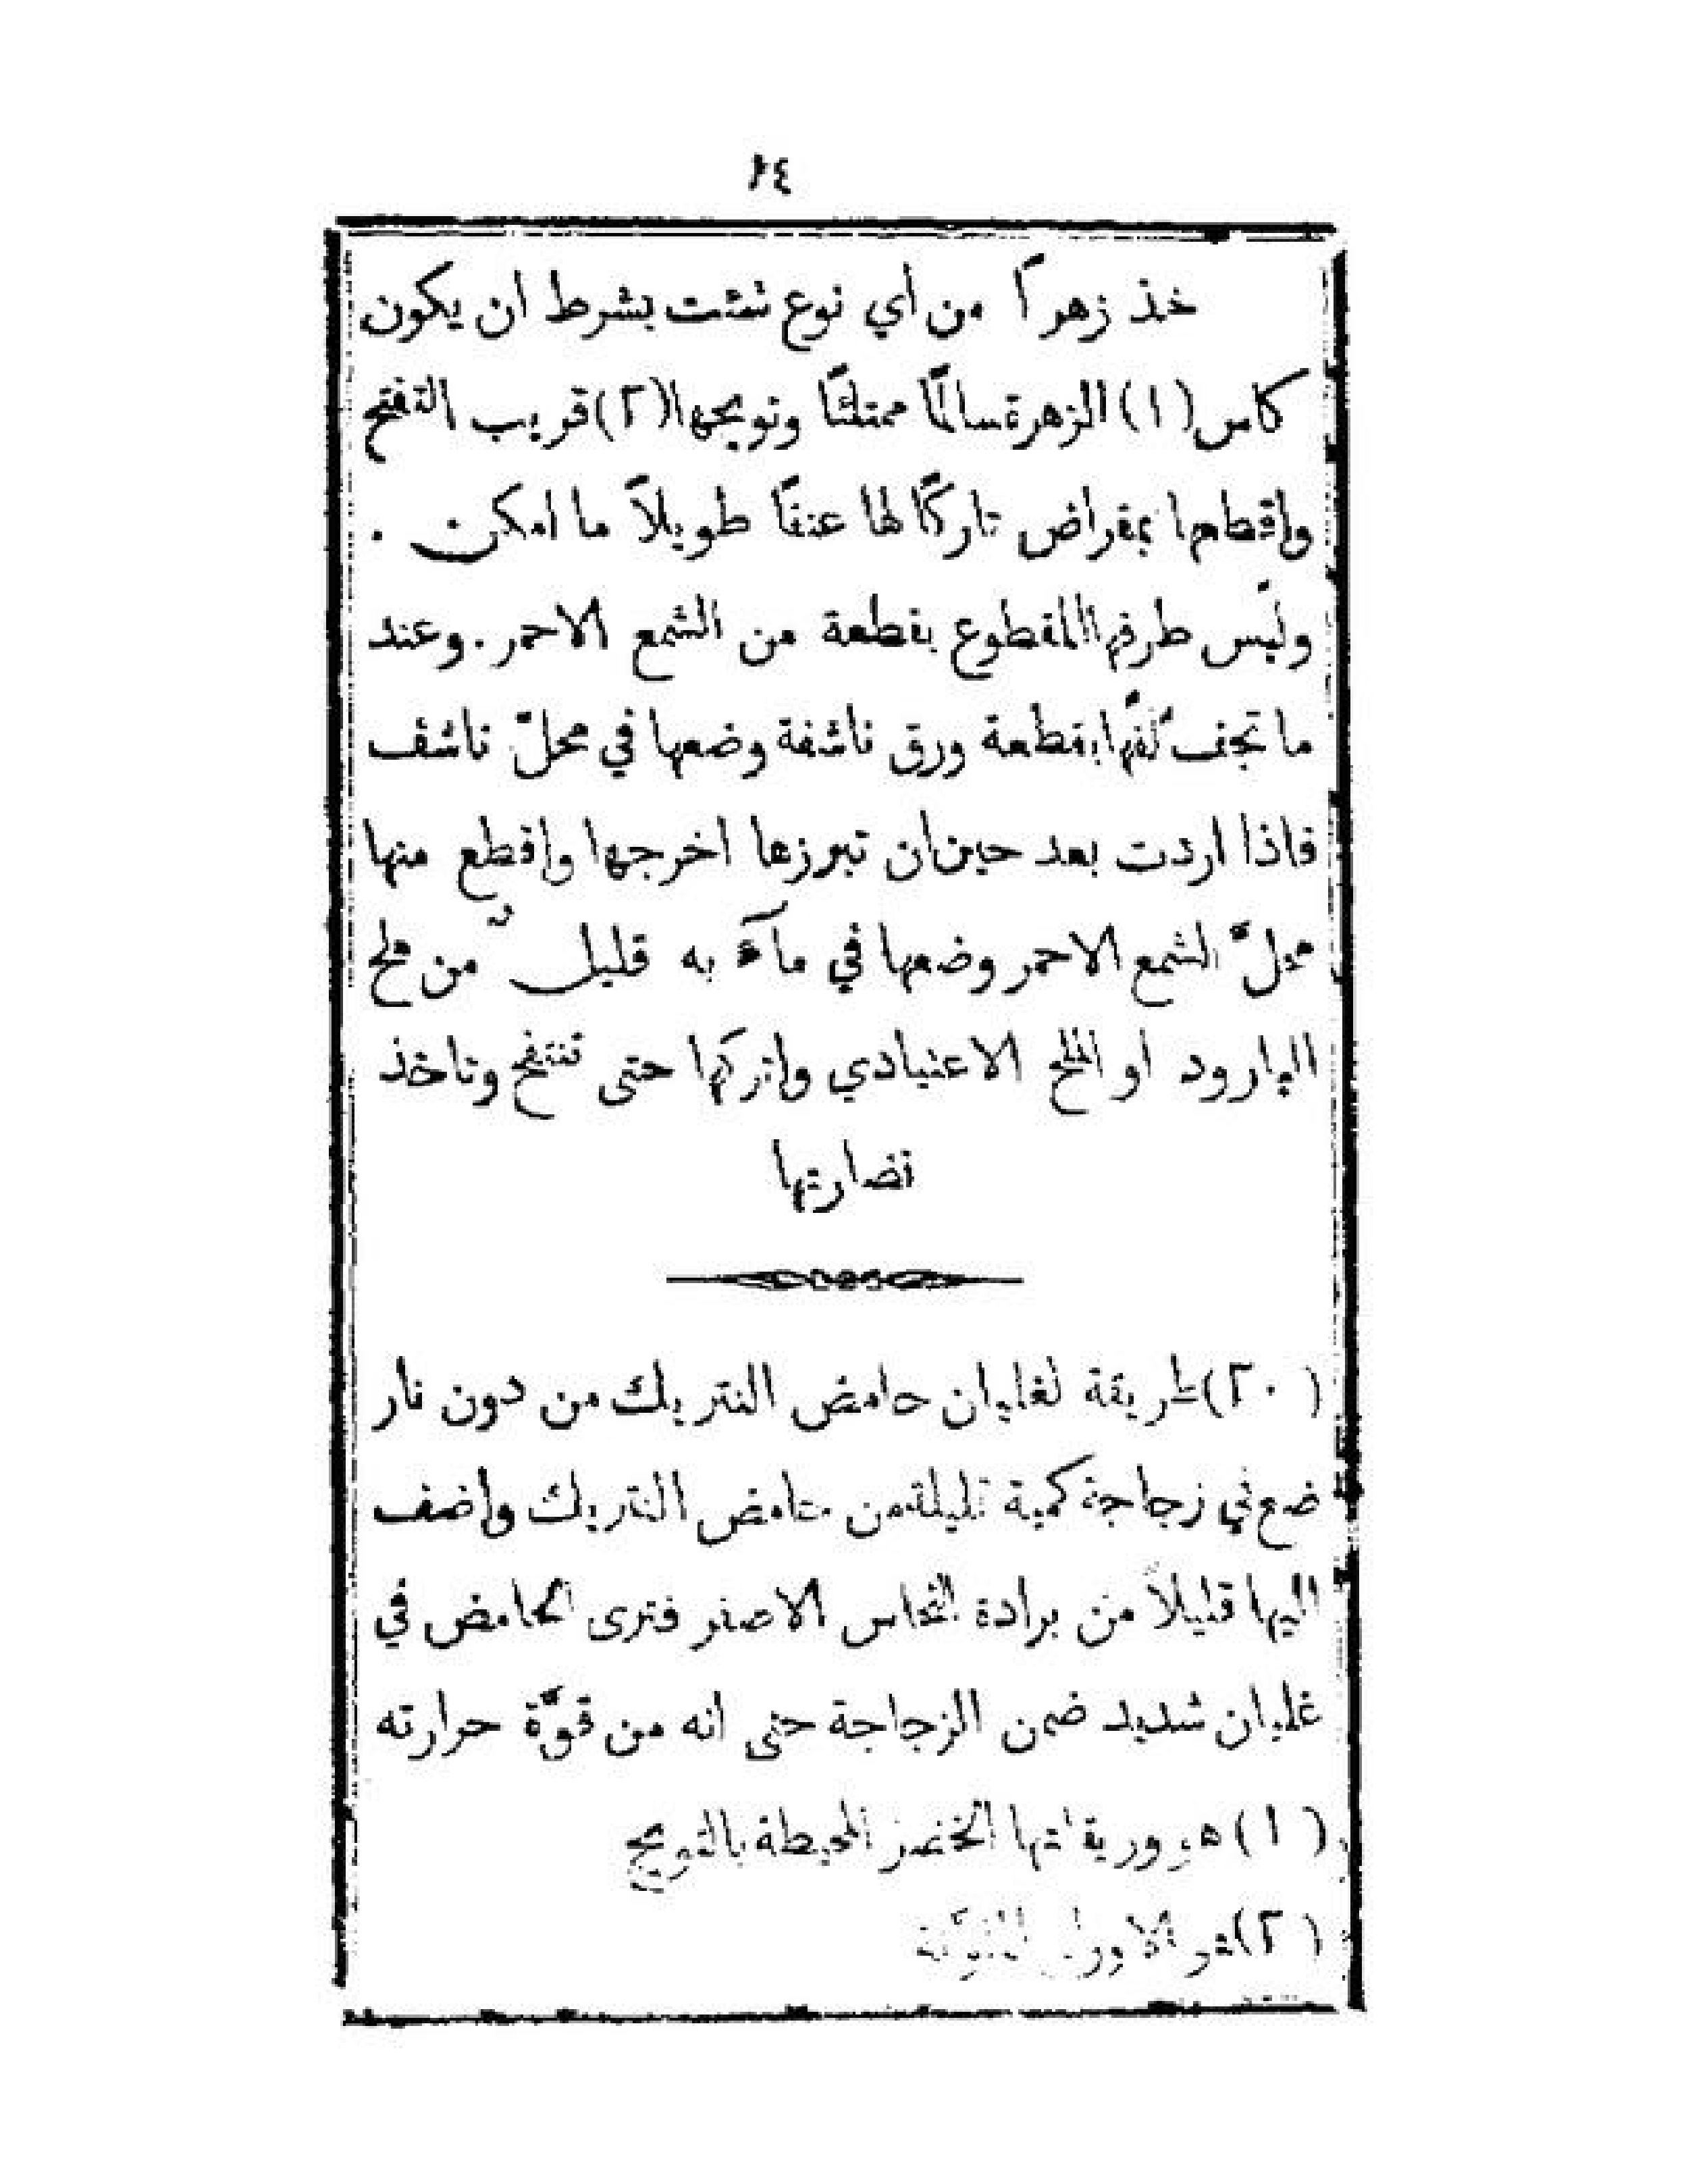 ٢٤
خذ زهراً من أي نوع شئت بشرط ان يكون
كاس (١) الزهرة سالمًا ممتلئًا وتويجها (٢) قريب التفتح
واقطعها بمقراض تاركًا لها عنقًا طويلاً ما امكن .
ولبّس طرفها المقطوع بقطعة من الشمع الاحمر . وعند
ما تجف لُفَّها بقطعة ورق ناشفة وضعها في محلّ ناشف
فاذا اردت بعد حين ان تبرزها اخرجها واقطع منها
محلّ الشمع الاحمر وضعها في مآء به قليلٌ من ملح
البارود او الملح الاعتيادي واتركها حتى تنتفخ وتاخذ
نضارتها
(٢٠) طريقة لغليان حامض النتريك من دون نار
ضع في زجاجة كمية قليلة من حامض النتريك واضف
اليها قليلاً من برادة النحاس الاصفر فترى الحامض في
غليان شديد ضمن الزجاجة حتى انه من قوّة حرارته
(١) هو وريقاتها الخضر المحيطة بالتويج
(٢) هو الاوراق الملوّنة